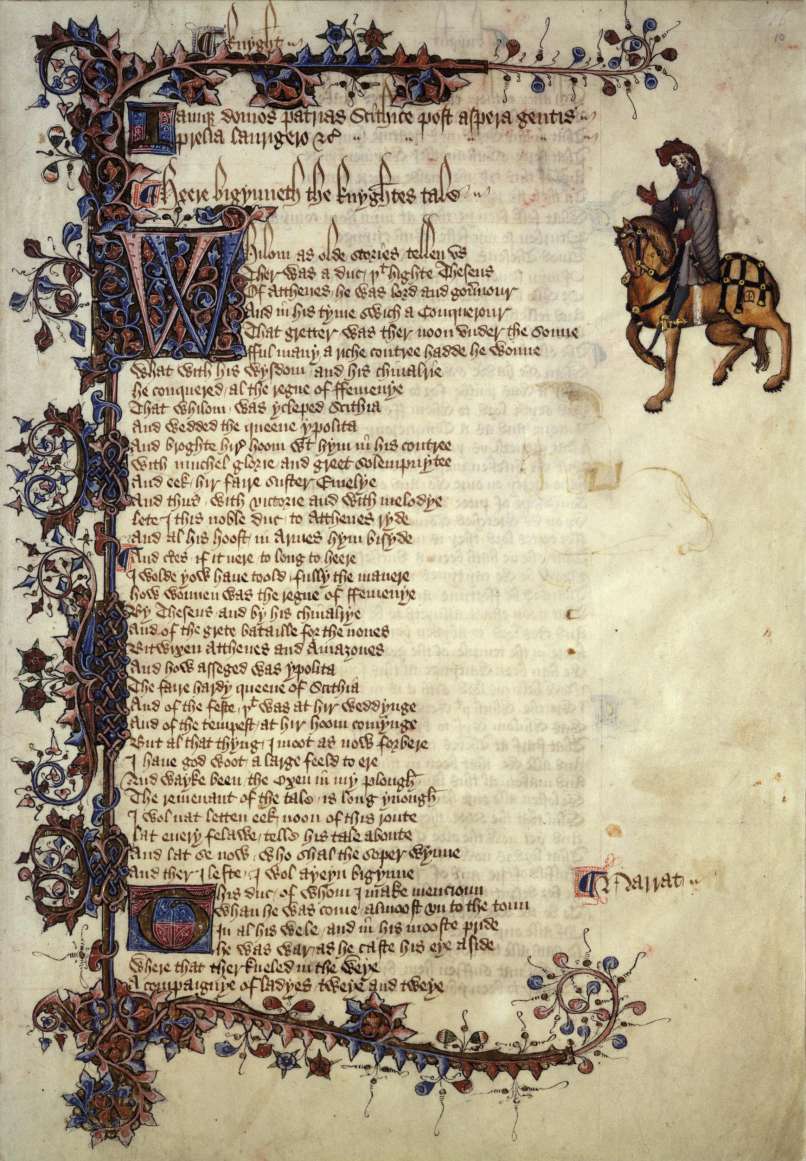 ¶ Knyght
10
Iamque domos patrias Scithice post aspera gentis
prelia laurigero &c
¶ Heere bigynneth the knyghtes tale
Whilom as olde stories tellen vs
Ther was a duc þt highte Theseus
Of Atthenes he was lord and gouernour
And in his tyme swich a Conquerour
That gretter was ther noon vnder the sonne
fful many a riche contree hadde he wonne
What with his wysdom and his chiualrie
he conquered al the regne of ffemenye
That whilom was ycleped Scithia
And wedded the queene ypolita
And broghte hir hoom wt hym in his contree
With muchel glorie and greet solempnytee
And eek hir faire suster Emelye
And thus with victorie and with melodye
lete I this noble duc to Atthenes ryde
And al his hoost in Armes hym bisyde
¶ And certes if it nere to long to heere
I wolde yow haue toold fully the manere
how wonnen was the regne of ffemenye
By Theseus and by his chiualrye
And of the grete bataille for the nones
Bitwixen Atthenes and Amazones
And how asseged was ypolita
The faire hardy queene of Scithia
And of the feste þt was at hir weddynge
And of the tempest at hir hoom comynge
But al that thyng I moot as now forbere
I haue god woot a large feeld to ere
And wayke been the Oxen in my plough
The remenant of the tale is long ynough
I wol nat letten eek noon of this route
lat euery felawe telle his tale aboute
And lat se now who shal the soper wynne
And ther I lefte I wol ayeyn bigynne
This duc of whom I make mencioun
¶ Narrat
Whan he was come almoost vn to the toun
In al his wele and in his mooste pride
he was war as he caste his eye aside
Where that ther kneled in the weye
A compaignye of ladyes tweye and tweye